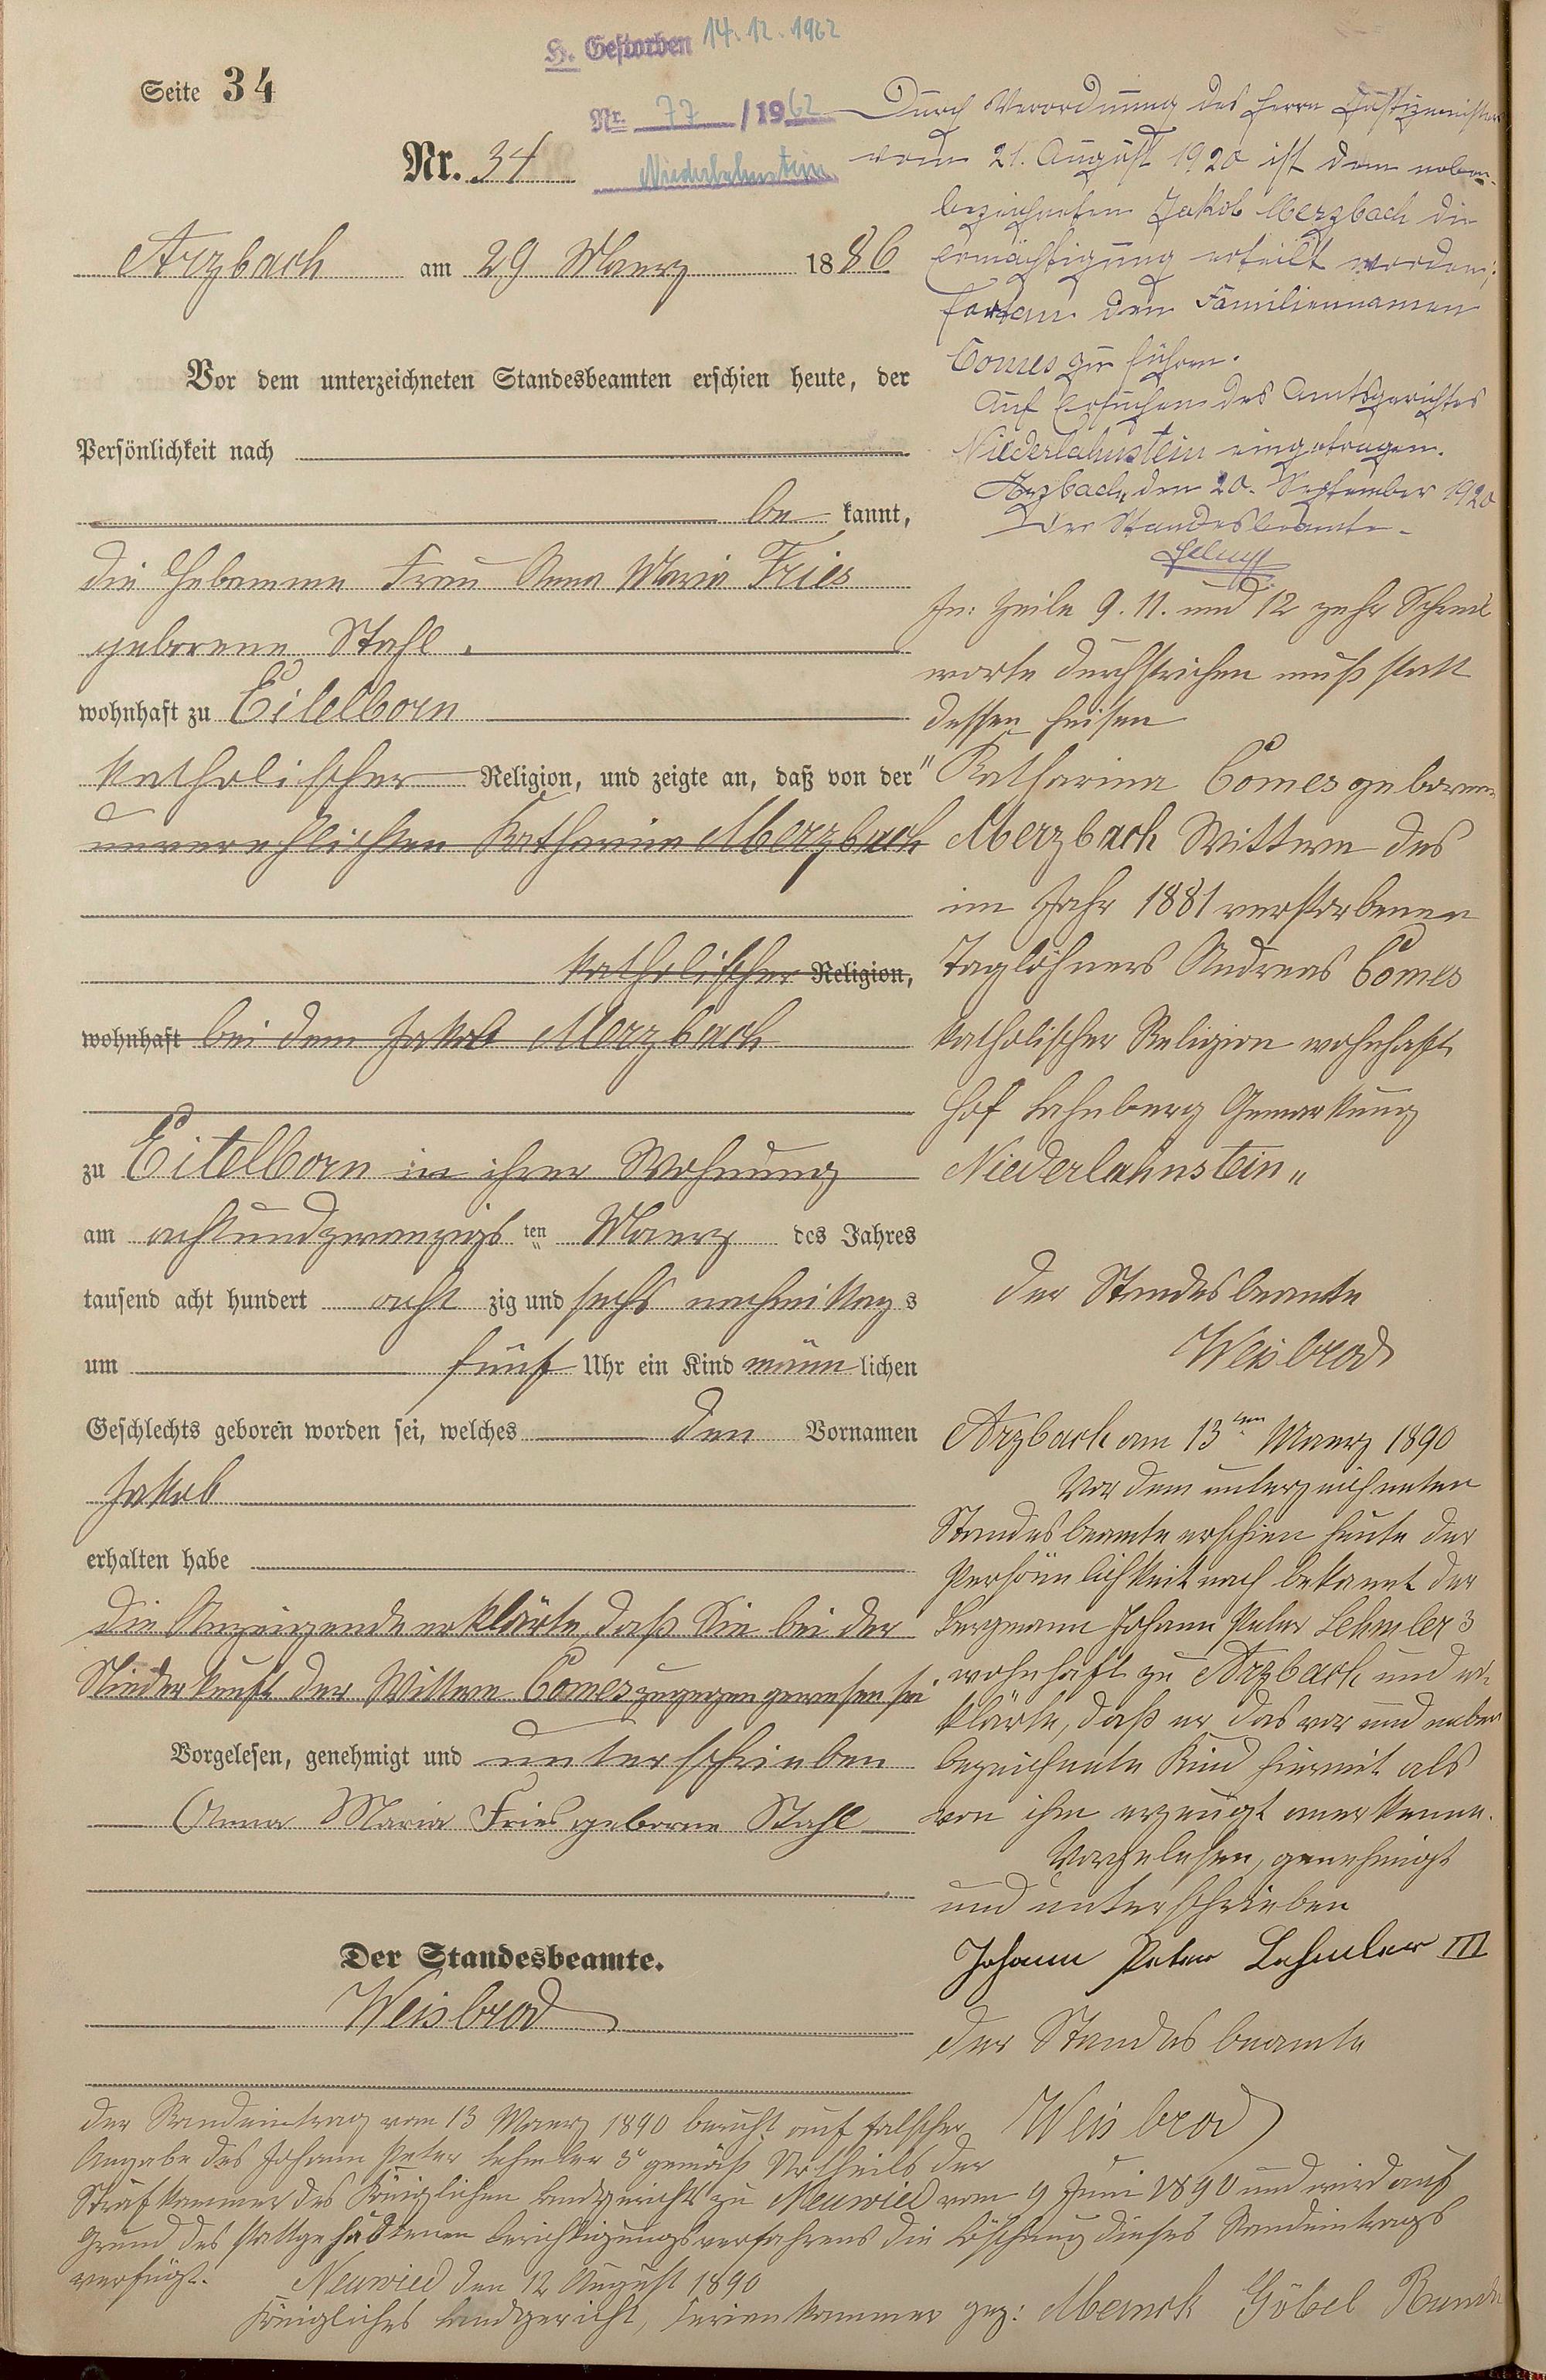 H. Gestorben 14.12.1962
Seite 34
Nr. 77 / 1962
Niederlahnstein
Nr. 34
Arzbach am 29 Maerz 1886
Vor dem unterzeichneten Standesbeamten erschien heute, der
Persönlichkeit nach
be kannt,
die Hebamme Frau Anna Maria Fries
geborene Stahl.
wohnhaft zu Eitelborn
katholischer Religion, und zeigte an, daß von der
unverehlichten Katharina Merzbach
katholischer Religion,
wohnhaft bei dem Jakob Merzbach
zu Eitelborn in ihrer Wohnung
am achtundzwanzigs ten Maerz des Jahres
tausend acht hundert acht zig und sechs nachmittag s
um fünf Uhr ein Kind männ lichen
Geschlechts geboren worden sei, welches den Vornamen
Jakob
erhalten habe
Die Anzeigende erklärte, daß Sie bei der
Niederkunft der Wittwe Comes zugegen gewesen sei
Vorgelesen, genehmigt und unterschrieben
Anna Maria Fries geborne Stahl
Der Standesbeamte.
Weisbrod
Durch Verordnung des Herrn Justizministers
vom 21. August 1920 ist dem neben-
bezeichneten Jakob Merzbach die
Ermächtigung erteilt worden,
fortan den Familiennamen
Comes zu führen.
Auf Ersuchen des Amtsgerichtes
Niederlahnstein eingetragen.
Arzbach, den 20. September 1920
Der Standesbeamte.
In: Zeile 9. 11. und 12 zehn
worte durchstrichen muß statt
dessen heisen
"Katharina Comes geborene
Merzbach Wittwe des
im Jahr 1881 verstorbenen
Taglöhners Andreas Comes
katholischer Religion wohnhaft
Hof Lahnberg Gemarkung
Niederlahnstein"
Der Standesbeamte
Weisbrod
Arzbach am 13ten Maerz 1890
Vor dem unterzeichneten
Standesbeamte erschien heute der
Persönnlichkeit nach bekannt der
Bergmann Johann Peter Lehmler 3
wohnhaft zu Arzbach und er-
klärte, daß er das vor und neben
bezeichnete Kind hiermit als
von ihm erzeugt anerkenne.
Vorgelesen, genehmigt
und unterschrieben
Johann Peter Lehmler III
Der Standesbeamte
Weisbrod
Der Randeintrag vom 13 Maerz 1890 beruht auf falscher
Angabe des Johann Peter Lehmler 3r gemäß Urtheils der
Strafkammer des Königlichen Landgerichts zu Neuwied vom 9 Juni 1890 und wird auf
Grund des stattgehabtenen Berichtigungsverfahrens die Löschung dieses Randeintrags
verfügt. Neuwied den 12 August 1890
Königliches Landgericht, Ferienkammer gez: Göbel